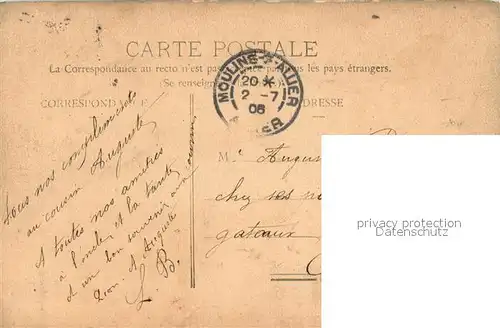 CARTE POSTALE
La Correspondance au recto n'est pas tous les pays étrangers.
Se renseign
CORRESPONDANCE
ADRESSE
MOULINS-S-ALLIER
20 *
2 -7
06
ALLIER
Tous nos compliments
au cousin Auguste
A toutes nos amitiés
à l'oncle et la tante
et un bon souvenir au cousin
Léon. A. Auguste
L. B.
M. Augus
chez ses
gateaux
privacy protection
Datenschutz